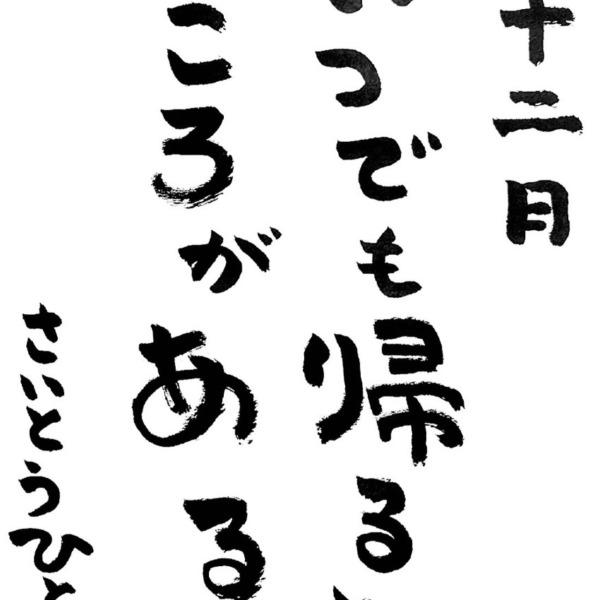 十二月
いつでも帰ると
ころがある
さいとうひと